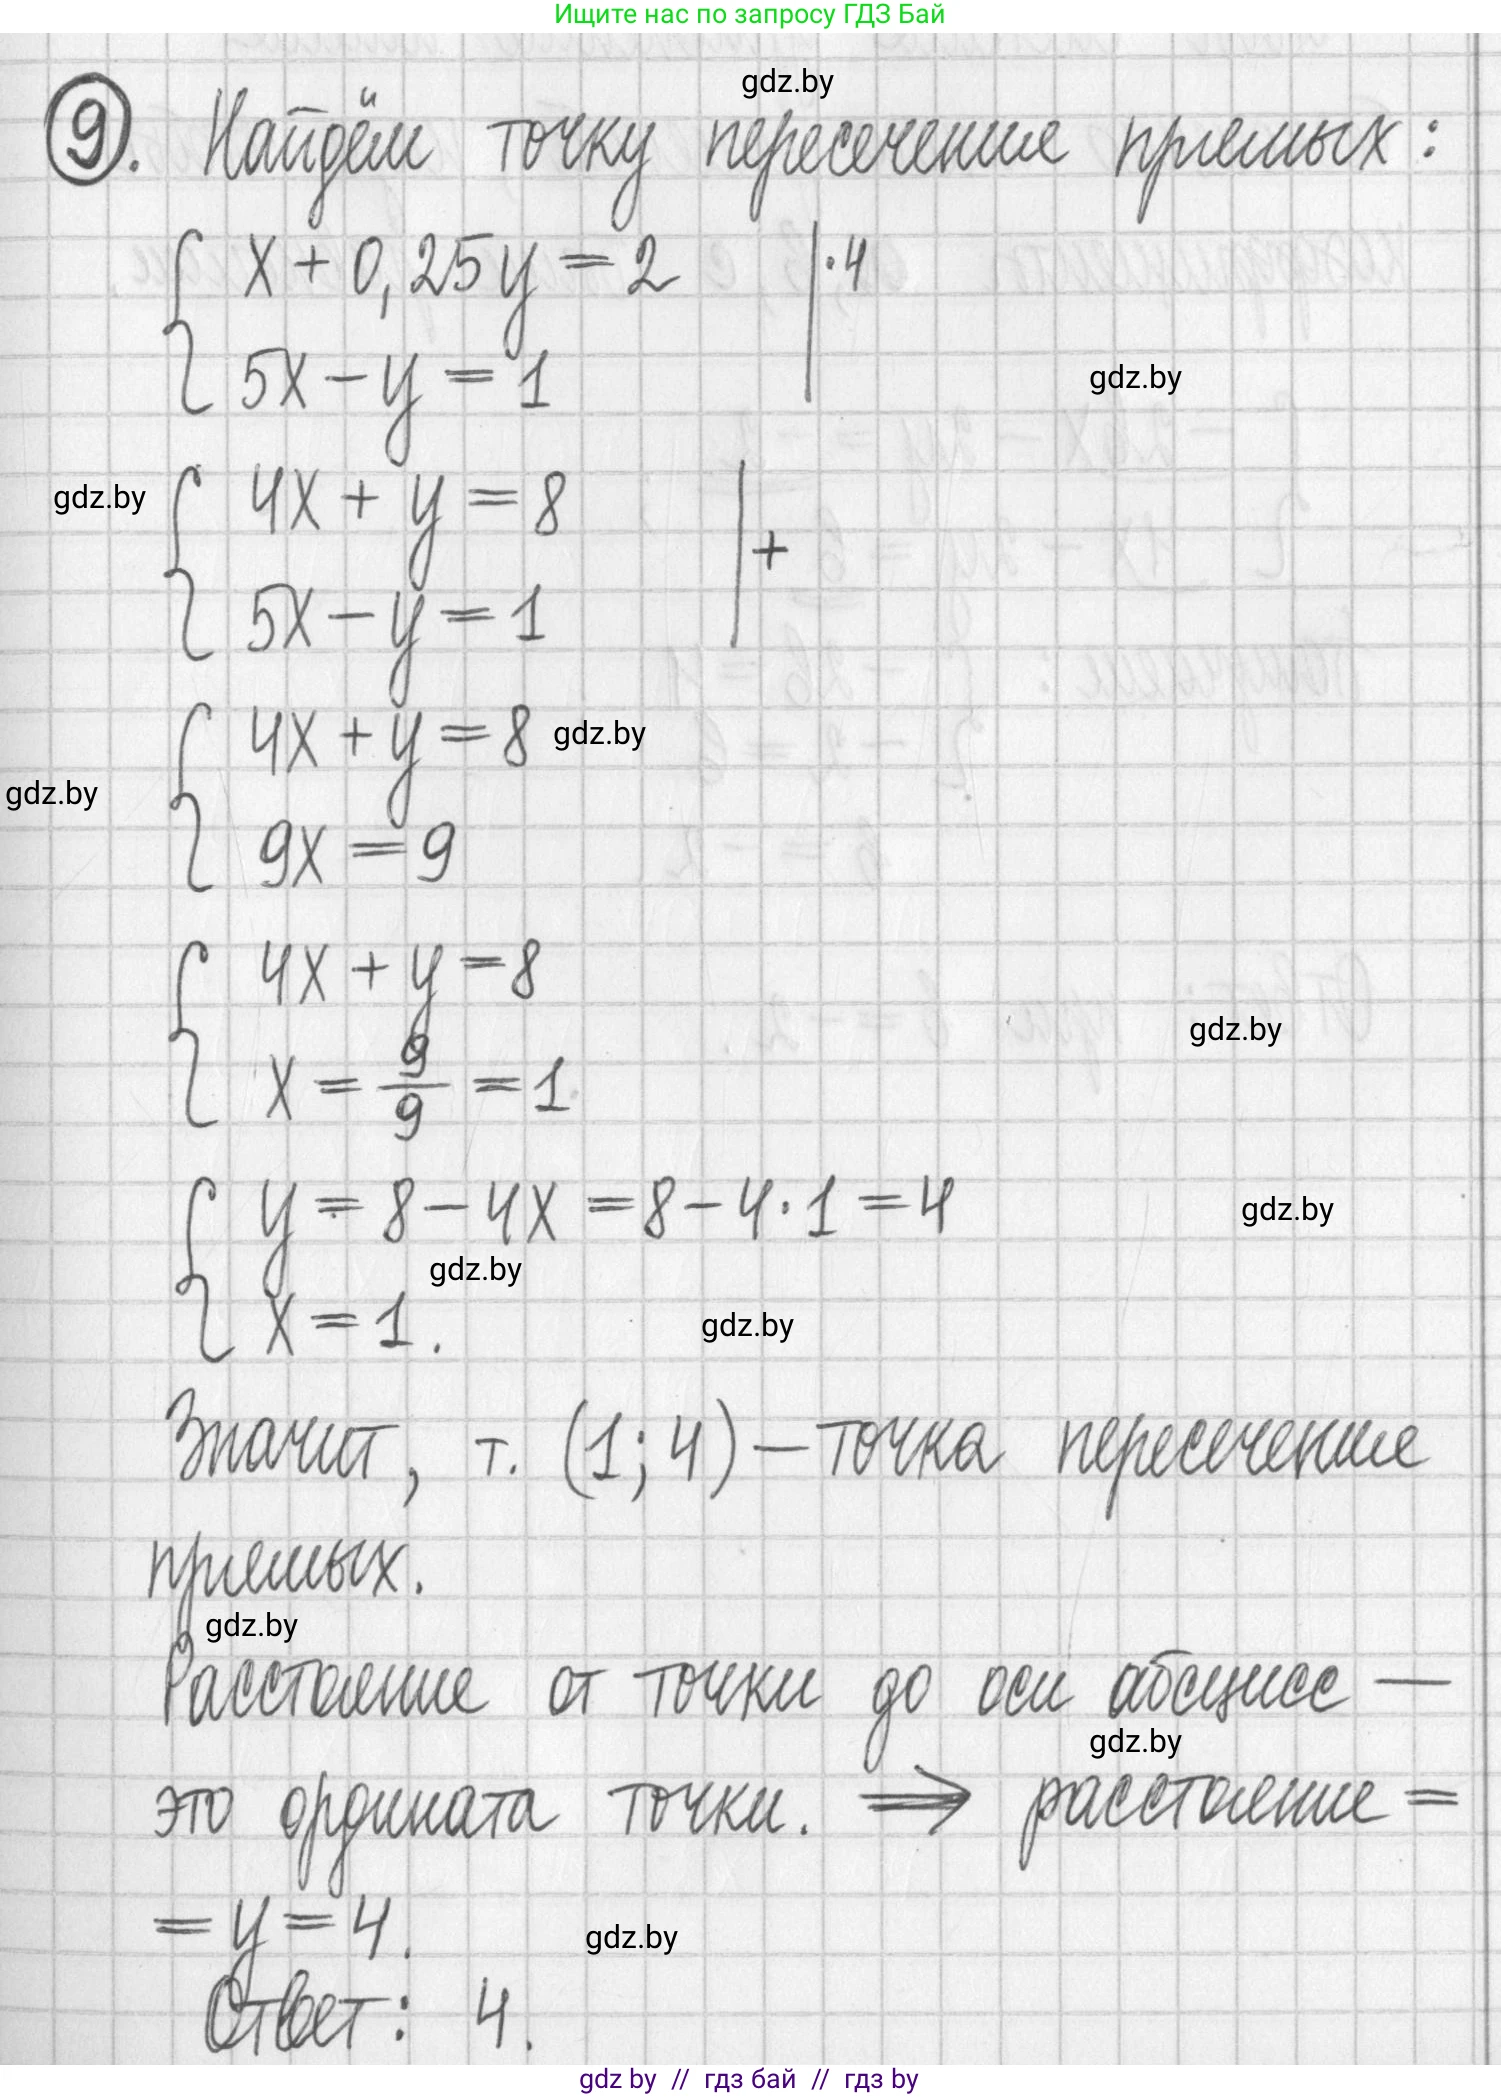 Ищите нас по запросу ГДЗ Бай
gdz.by
9. Найдём точку пересечение прямых:
x + 0,25y = 2 | ·4
5x - y = 1
gdz.by
4x + y = 8 | +
gdz.by
5x - y = 1
4x + y = 8
gdz.by
gdz.by
9x = 9
4x + y = 8
gdz.by
x = 9/9 = 1
y = 8 - 4x = 8 - 4·1 = 4
gdz.by
gdz.by
x = 1.
gdz.by
Значит, т. (1; 4) — точка пересечение
прямых.
gdz.by
Расстояние от точки до оси абсцисс —
gdz.by
это ордината точки. ⇒ расстояние =
= y = 4.
gdz.by
Ответ: 4.
gdz.by // гдз бай // гдз by